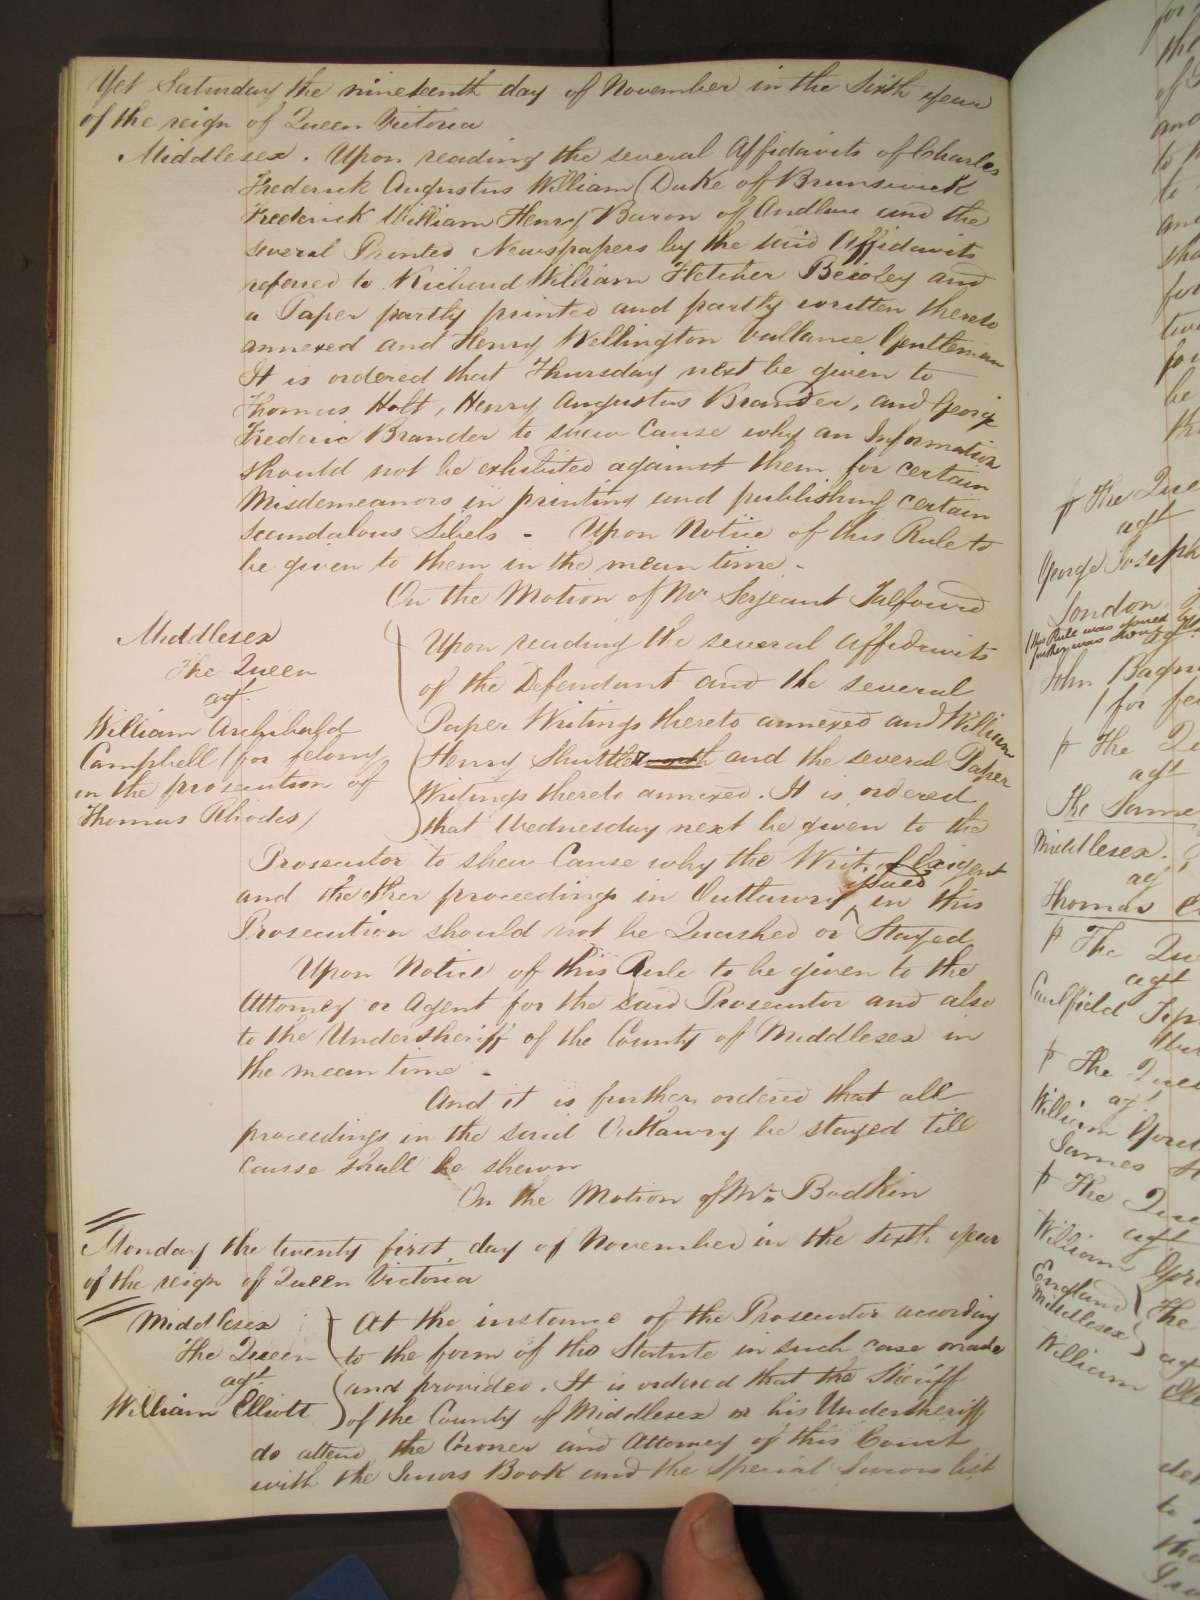 Yet Saturday the nineteenth day of November in the Sixth year
of the reign of Queen Victoria
Middlesex. Upon reading the several Affidavits of Charles
Frederick Augustus William (Duke of Brunswick
Frederick William Henry Baron of Andlau and the
several Printed Newspapers by the said Affidavits
referred to Richard William Fletcher Beisley and
a Paper partly printed and partly written thereto
annexed and Henry Wellington Vallance Gentleman
It is ordered that Thursday next be given to
Thomas Holt, Henry Augustus Brander, and George
Frederic Brander to shew Cause why an Information
should not be exhibited against them for certain
Misdemeanors in printing and publishing certain
scandalous Libels - Upon Notice of this Rule to
be given to them in the mean time -
On the Motion of Mr Serjeant Talfourd
Middlesex
The Queen
agt
William Archibald
Campbell (for felony
in the prosecution of
Thomas Rhodes)
Upon reading the several affidavits
of the Defendant and the several
Paper Writings thereto annexed and William
Henry Shuttleworth and the several Paper
Writings thereto annexed. It is ordered
that Wednesday next be given to the
Prosecutor to shew Cause why the Writ of Exigent
and the other proceedings in Outlawry issued in this
Prosecution should not be Quashed or Stayed
Upon Notice of this Rule to be given to the
Attorney or Agent for the said Prosecutor and also
to the Undersheriff of the County of Middlesex in
the mean time -
And it is further ordered that all
proceedings in the said Outlawry be stayed till
cause shall be shewn
On the Motion of Mr. Bodkin
Monday the twenty first day of November in the sixth year
of the reign of Queen Victoria
Middlesex
The Queen
agt
William Elliott
At the instance of the Prosecutor according
to the form of the Statute in such case made
and provided. It is ordered that the Sheriff
of the County of Middlesex or his Undersheriff
do attend the Coroner and Attorney of this Court
with the Jurors Book and the Special Jurors list
The Que
agt
George Joseph
London
(this Rule was opened
John Bagn
(for fe
The Qu
agt
The Same
Middlesex.
agt
Thomas
The Que
agt
Caulfield
The Quee
agt
William
James
The Que
agt
William
England
Middlesex
The
William